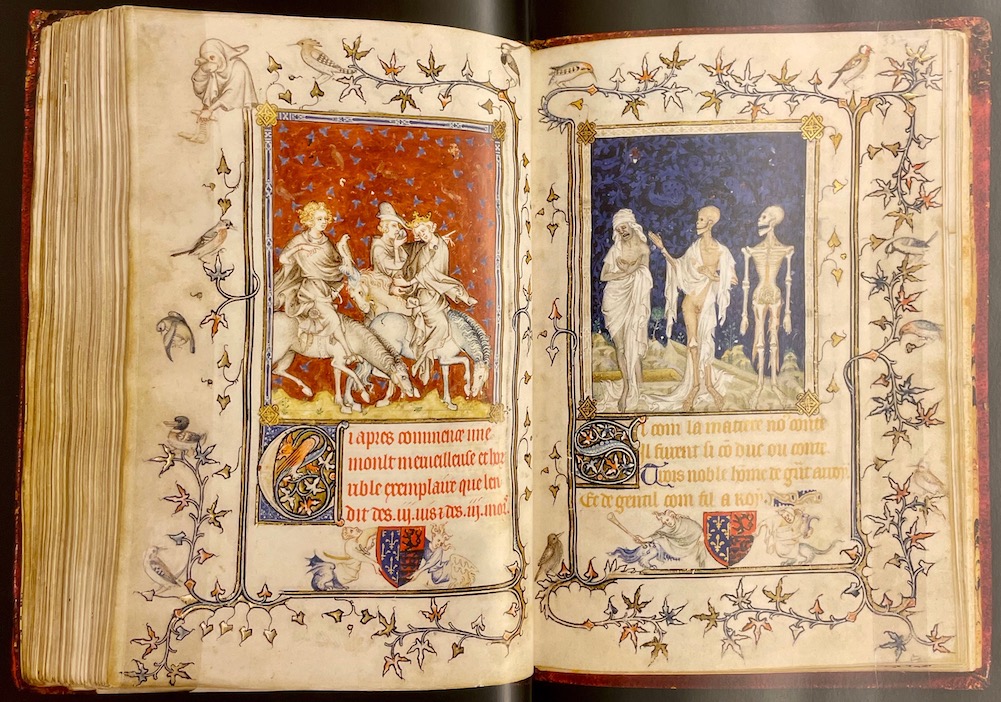 Ci apres commence une
moult merueilleuse et hor
rible exemplaire que len
dit des .iij. uis z des .iij. mors
Si com la matiere no conte
Il furent si co duc ou conte
Trois noble home de gñt arroy
Et de gentil com fil a roy